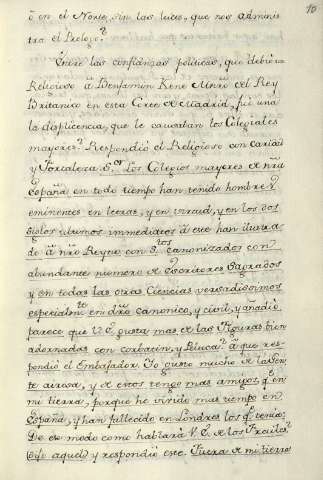 10
ò en el Norte, sin las luces, que nos adminis
tra el Prologo?
Entre las confianzas politicas, que debiò un
Religioso à Benjamin Kene Minrò del Rey
Britanico en esta Corte de Madrid, fuè una
la displicencia, que le causaban los Colegiales
mayores? Respondiò el Religioso con caridad
y fortaleza. S.or Los Colegios mayores de nrã
España en todo tiempo han tenido hombres
eminentes en letras, y en virtud, y en los dos
Siglos ultimos immediatos à este han ilustra-
do à nrò Reyno con S.tos Canonizados con
abundante numero de Escritores Sagrados
y en todas las otras Ciencias versadissimos
especialm.te en drò canonico, y civil, y añadiò
parece que V. E. gusta mas de las figuras bien
adornadas con corbatin, y Peluca? à que res-
pondiò el Embajador. Yo gusto mucho de la Gen-
te airosa, y de estos tengo mas amigos q.e en
mi tierra, porque he vivido mas tiempo en
España, y han fallecido en Londres los q.e tenia.
De ese modo como hablarà V. E. de los Frailes?
dijo aquel, y respondiò este. Fuera de mi tierra